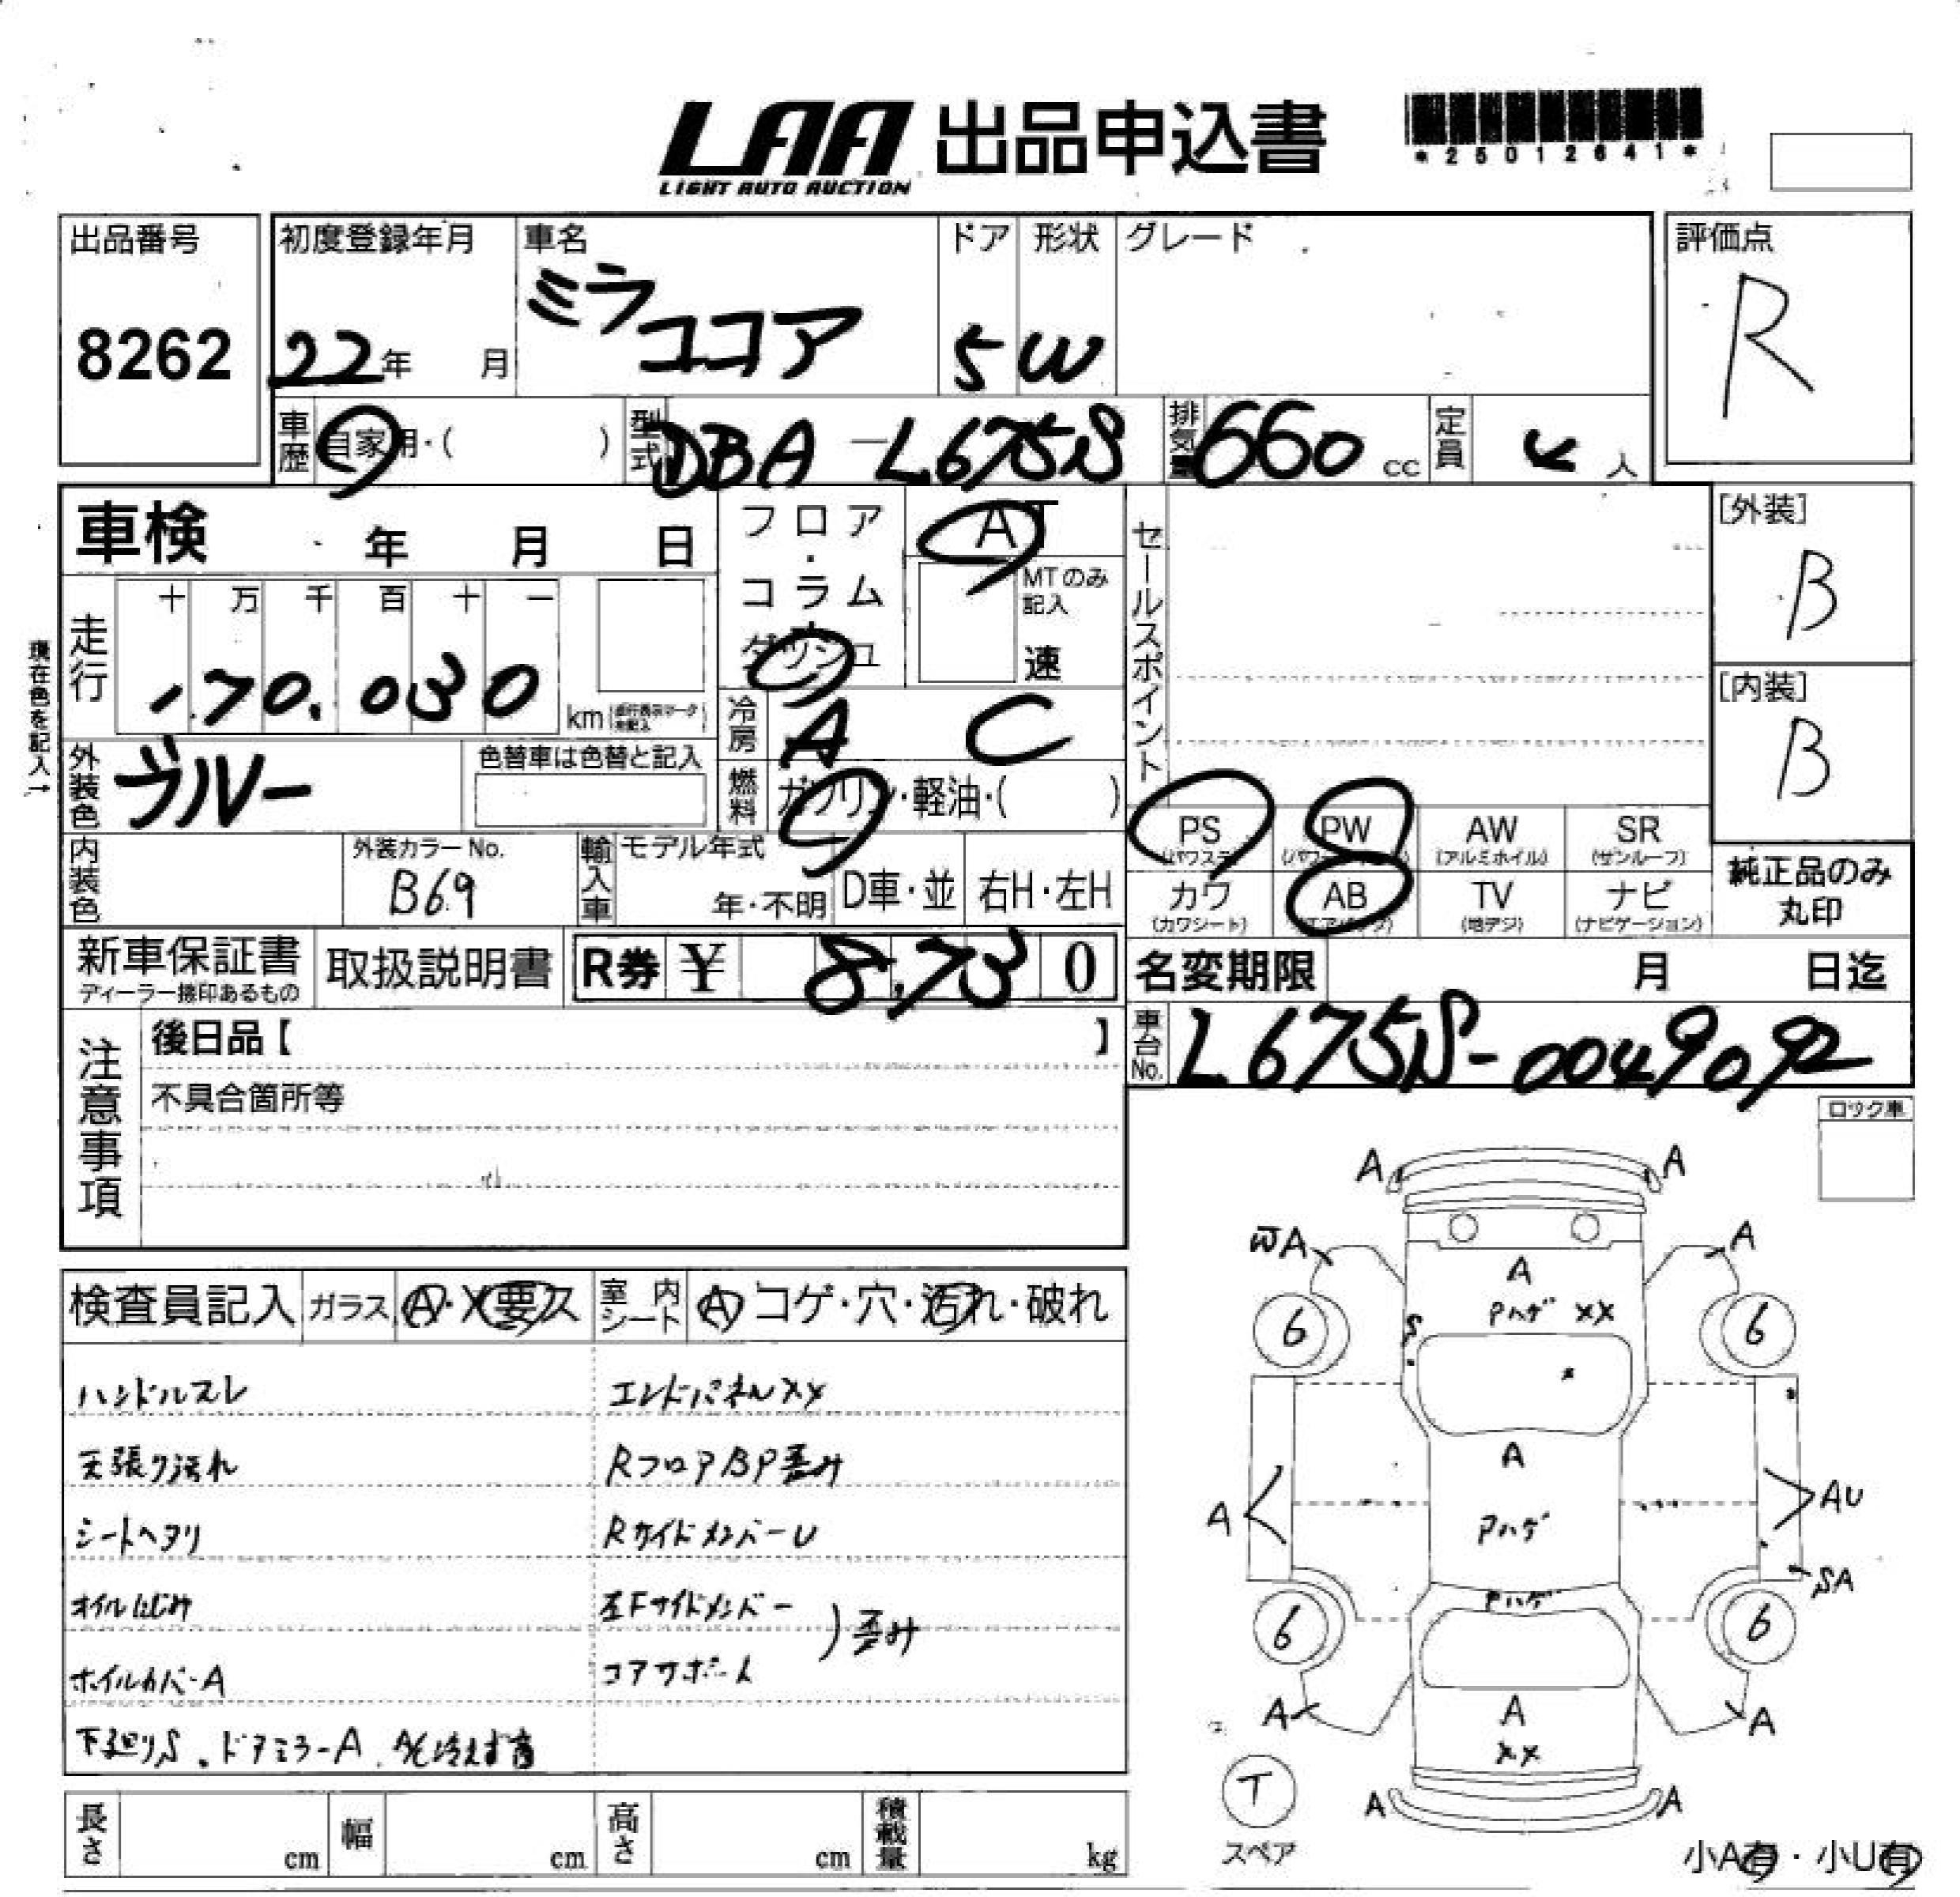 LAA 出品申込書
LIGHT AUTO AUCTION
*25012641*
出品番号
8262
初度登録年月
22年 月
車名
ミラ
ココア
ドア
5
形状
W
グレード
評価点
R
車歴 自家用・( )
型式 DBA-L675S
排気量 660 cc
定員 4 人
車検 年 月 日
フロア・コラム
ダッシュ
AT
MTのみ
記入
速
セールスポイント
[外装]
B
[内装]
B
現在色を記入→
走行
十 万 千 百 十 一
170.030 km
外装色 ブルー
色替車は色替と記入
冷房 A C
燃料 ガソリン・軽油・( )
内装色
外装カラーNo.
B69
輸入車
モデル年式
年・不明
D車・並
右H・左H
PS
(パワステ)
PW
AW
(アルミホイル)
SR
(サンルーフ)
カワ
(カワシート)
AB
(エアバッグ)
TV
(地デジ)
ナビ
(ナビゲーション)
純正品のみ
丸印
新車保証書
ディーラー捺印あるもの
取扱説明書
R券 ¥ 8,730
名変期限 月 日迄
車台No. L675S-0049092
注意事項
後日品【 】
不具合箇所等
ロック車
検査員記入 ガラス A・X要ス 室内シート A コゲ・穴・汚れ・破れ
ハンドルスレ
天張り汚れ
シートヘタリ
オイルにじみ
ホイルカバーA
下廻りS . ドアミラーA . A/C冷えず
エンドパネルXX
RフロアBP歪み
RサイドメンバーU
左Fサイドメンバー
コアサポート
)歪み
A A
WA A
A
Pハゲ XX
S
6 6
A
A AU
Pハゲ
SA
Pハゲ
6 6
A A A
XX
T
スペア
A A
小A有・小U有
長さ cm
幅 cm
高さ cm
積載量 kg